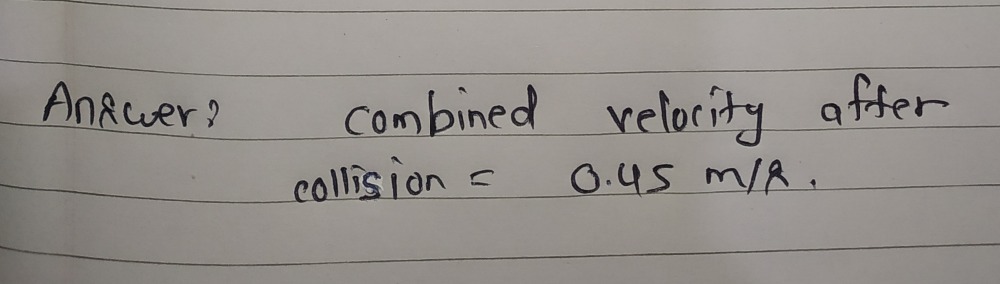 Answer: combined velocity after
collision = 0.45 m/s.